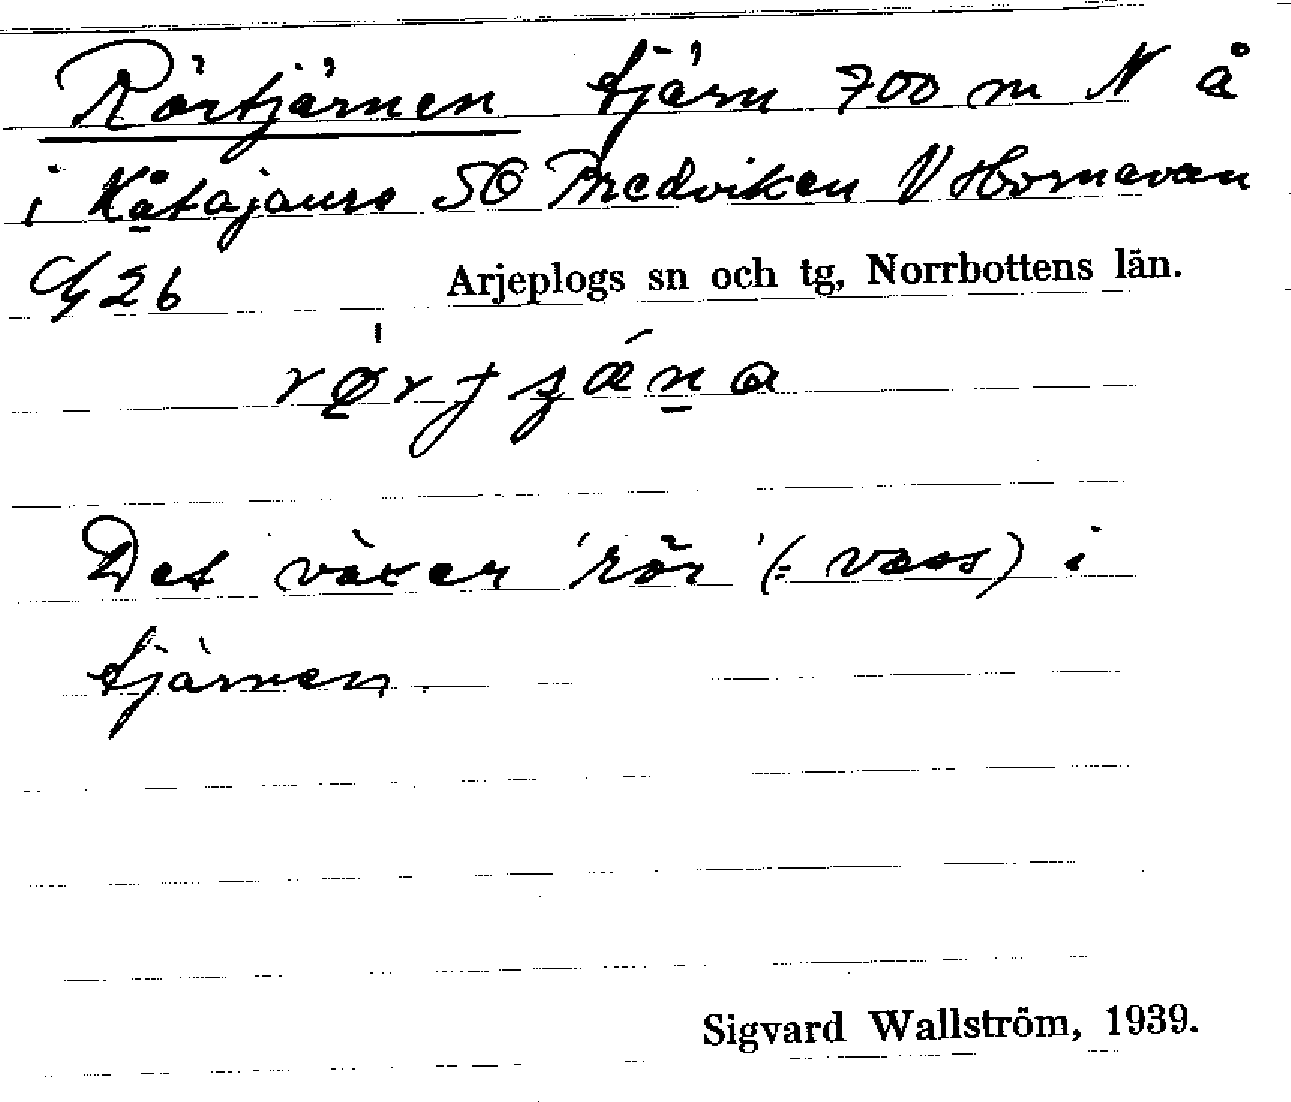 Rörtjärnen tjärn 700 m N å
i Kåtajaure SO Bredviken V Hornavan
26
Arjeplogs sn och tg, Norrbottens län.
Det växer 'rör' (= vass) i
tjärnen.
Sigvard Wallström, 1939.